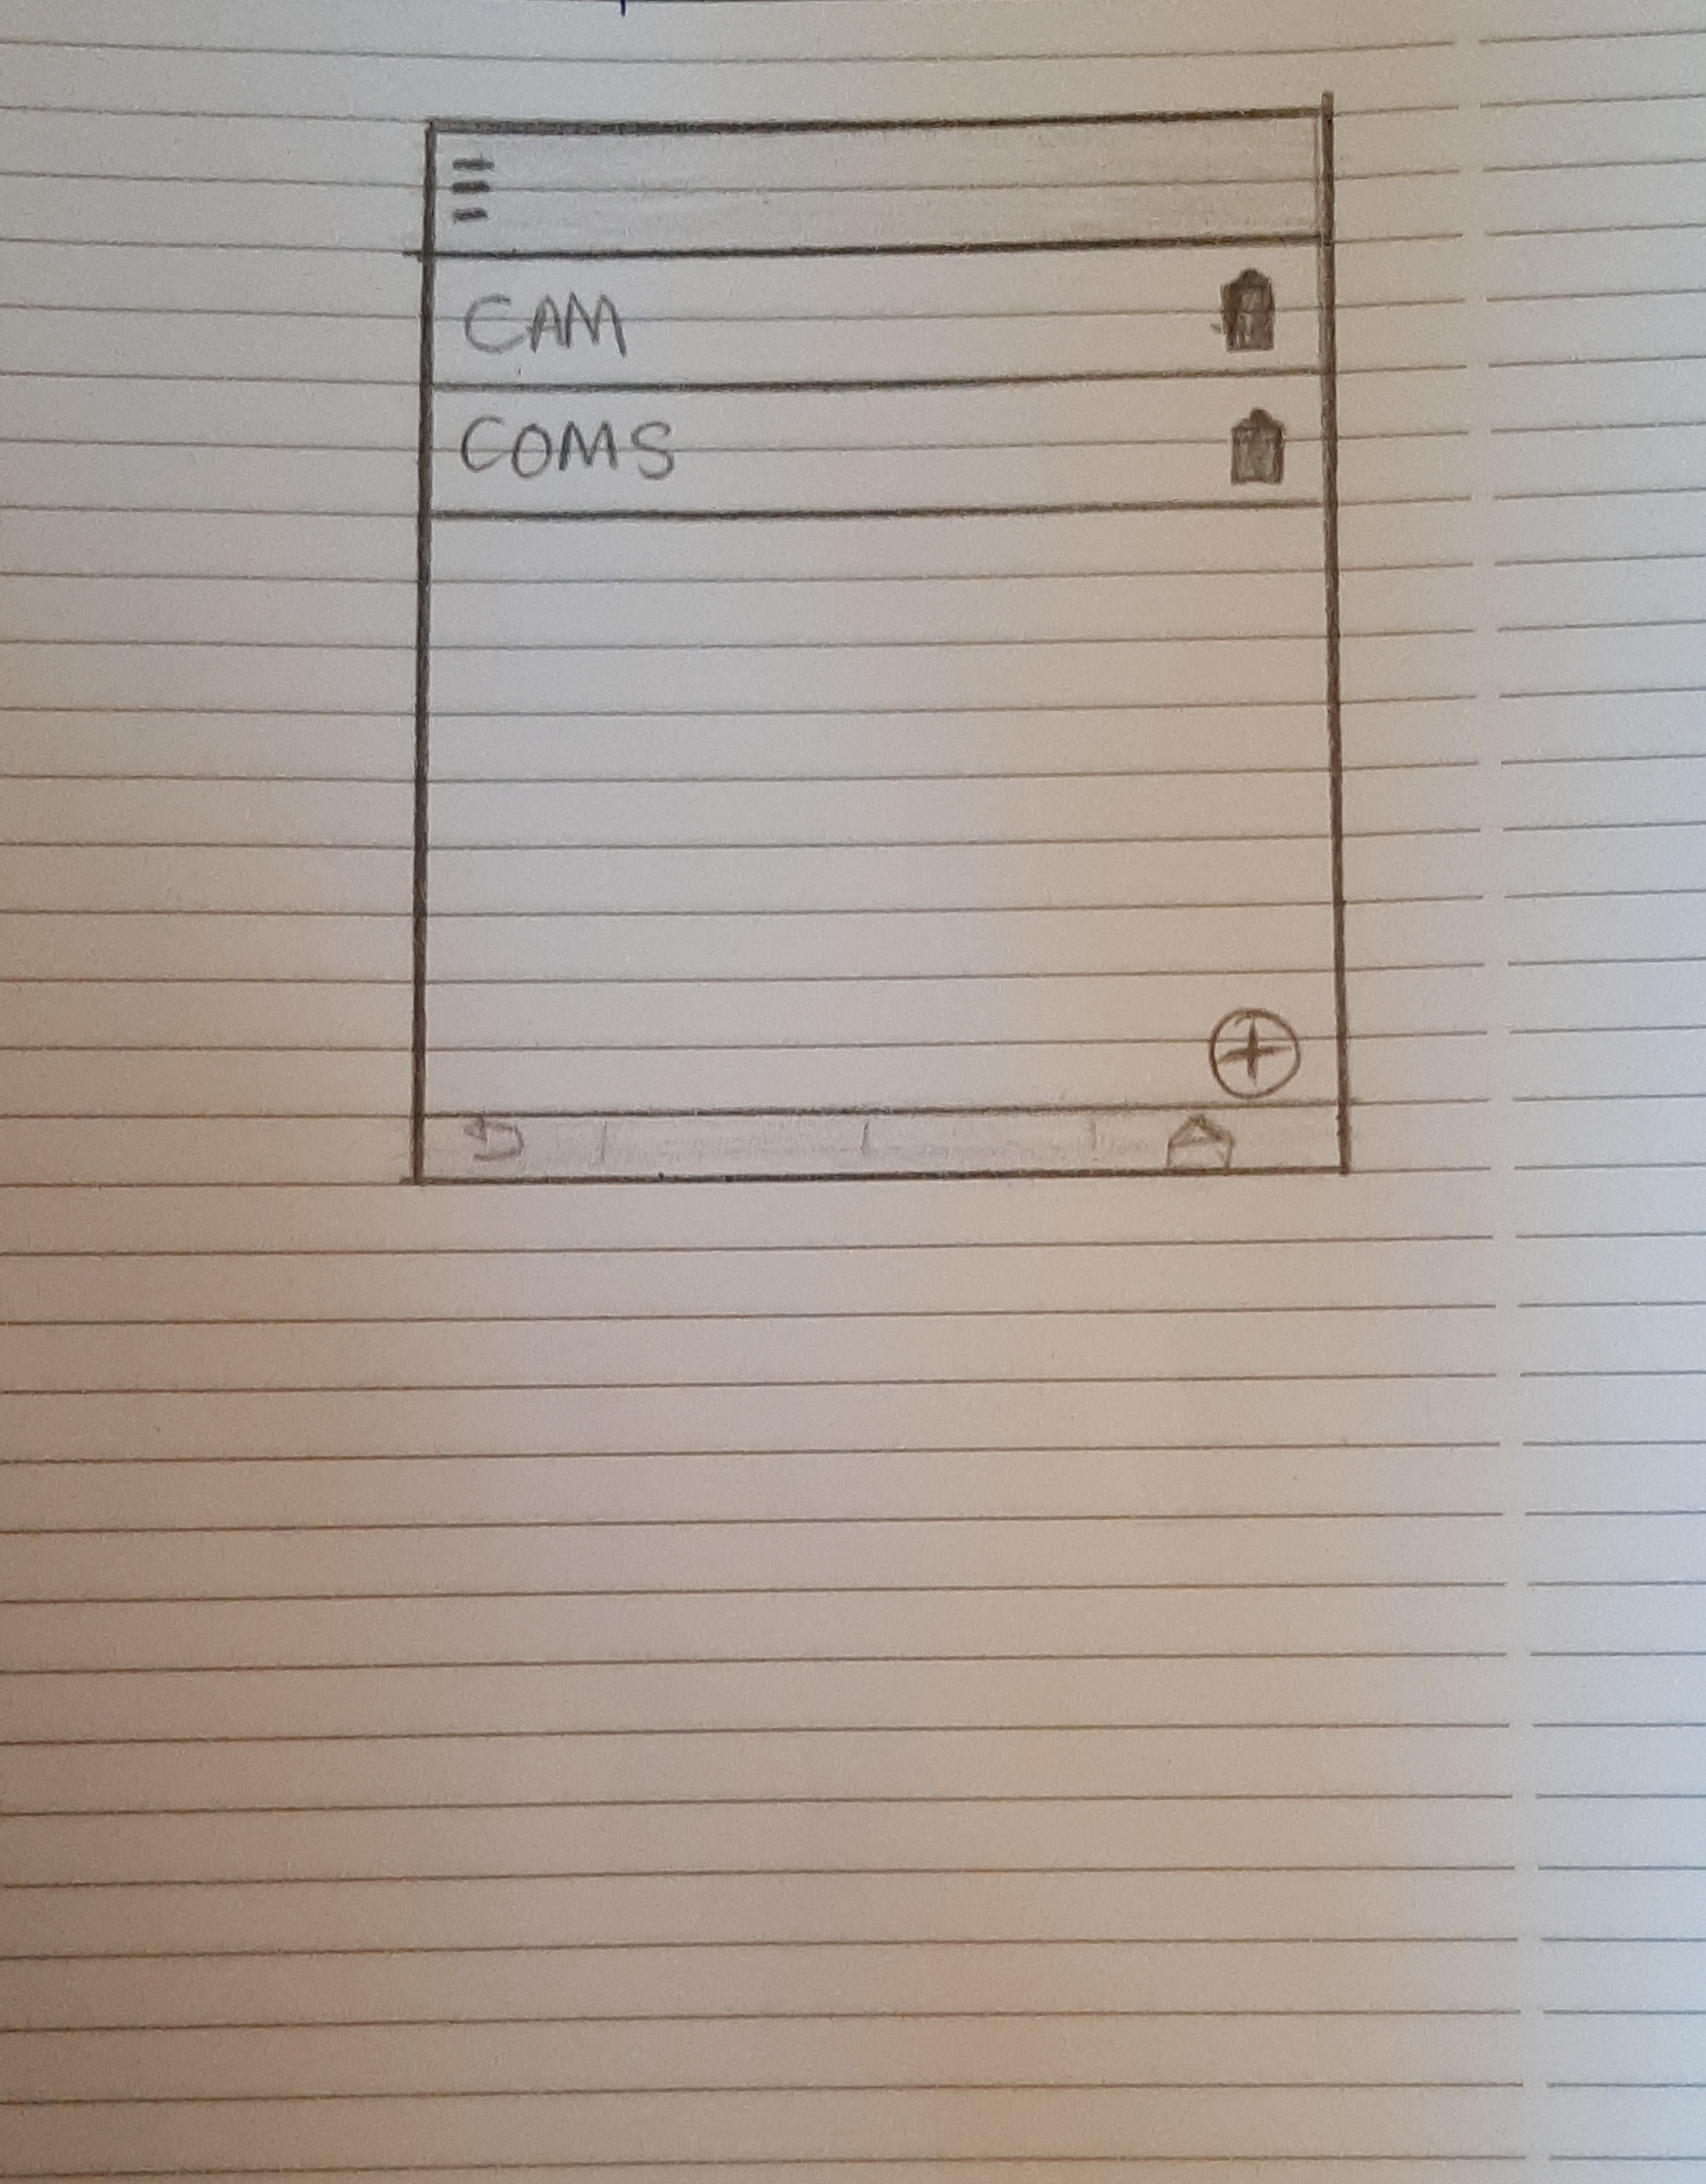 CAM
COMS